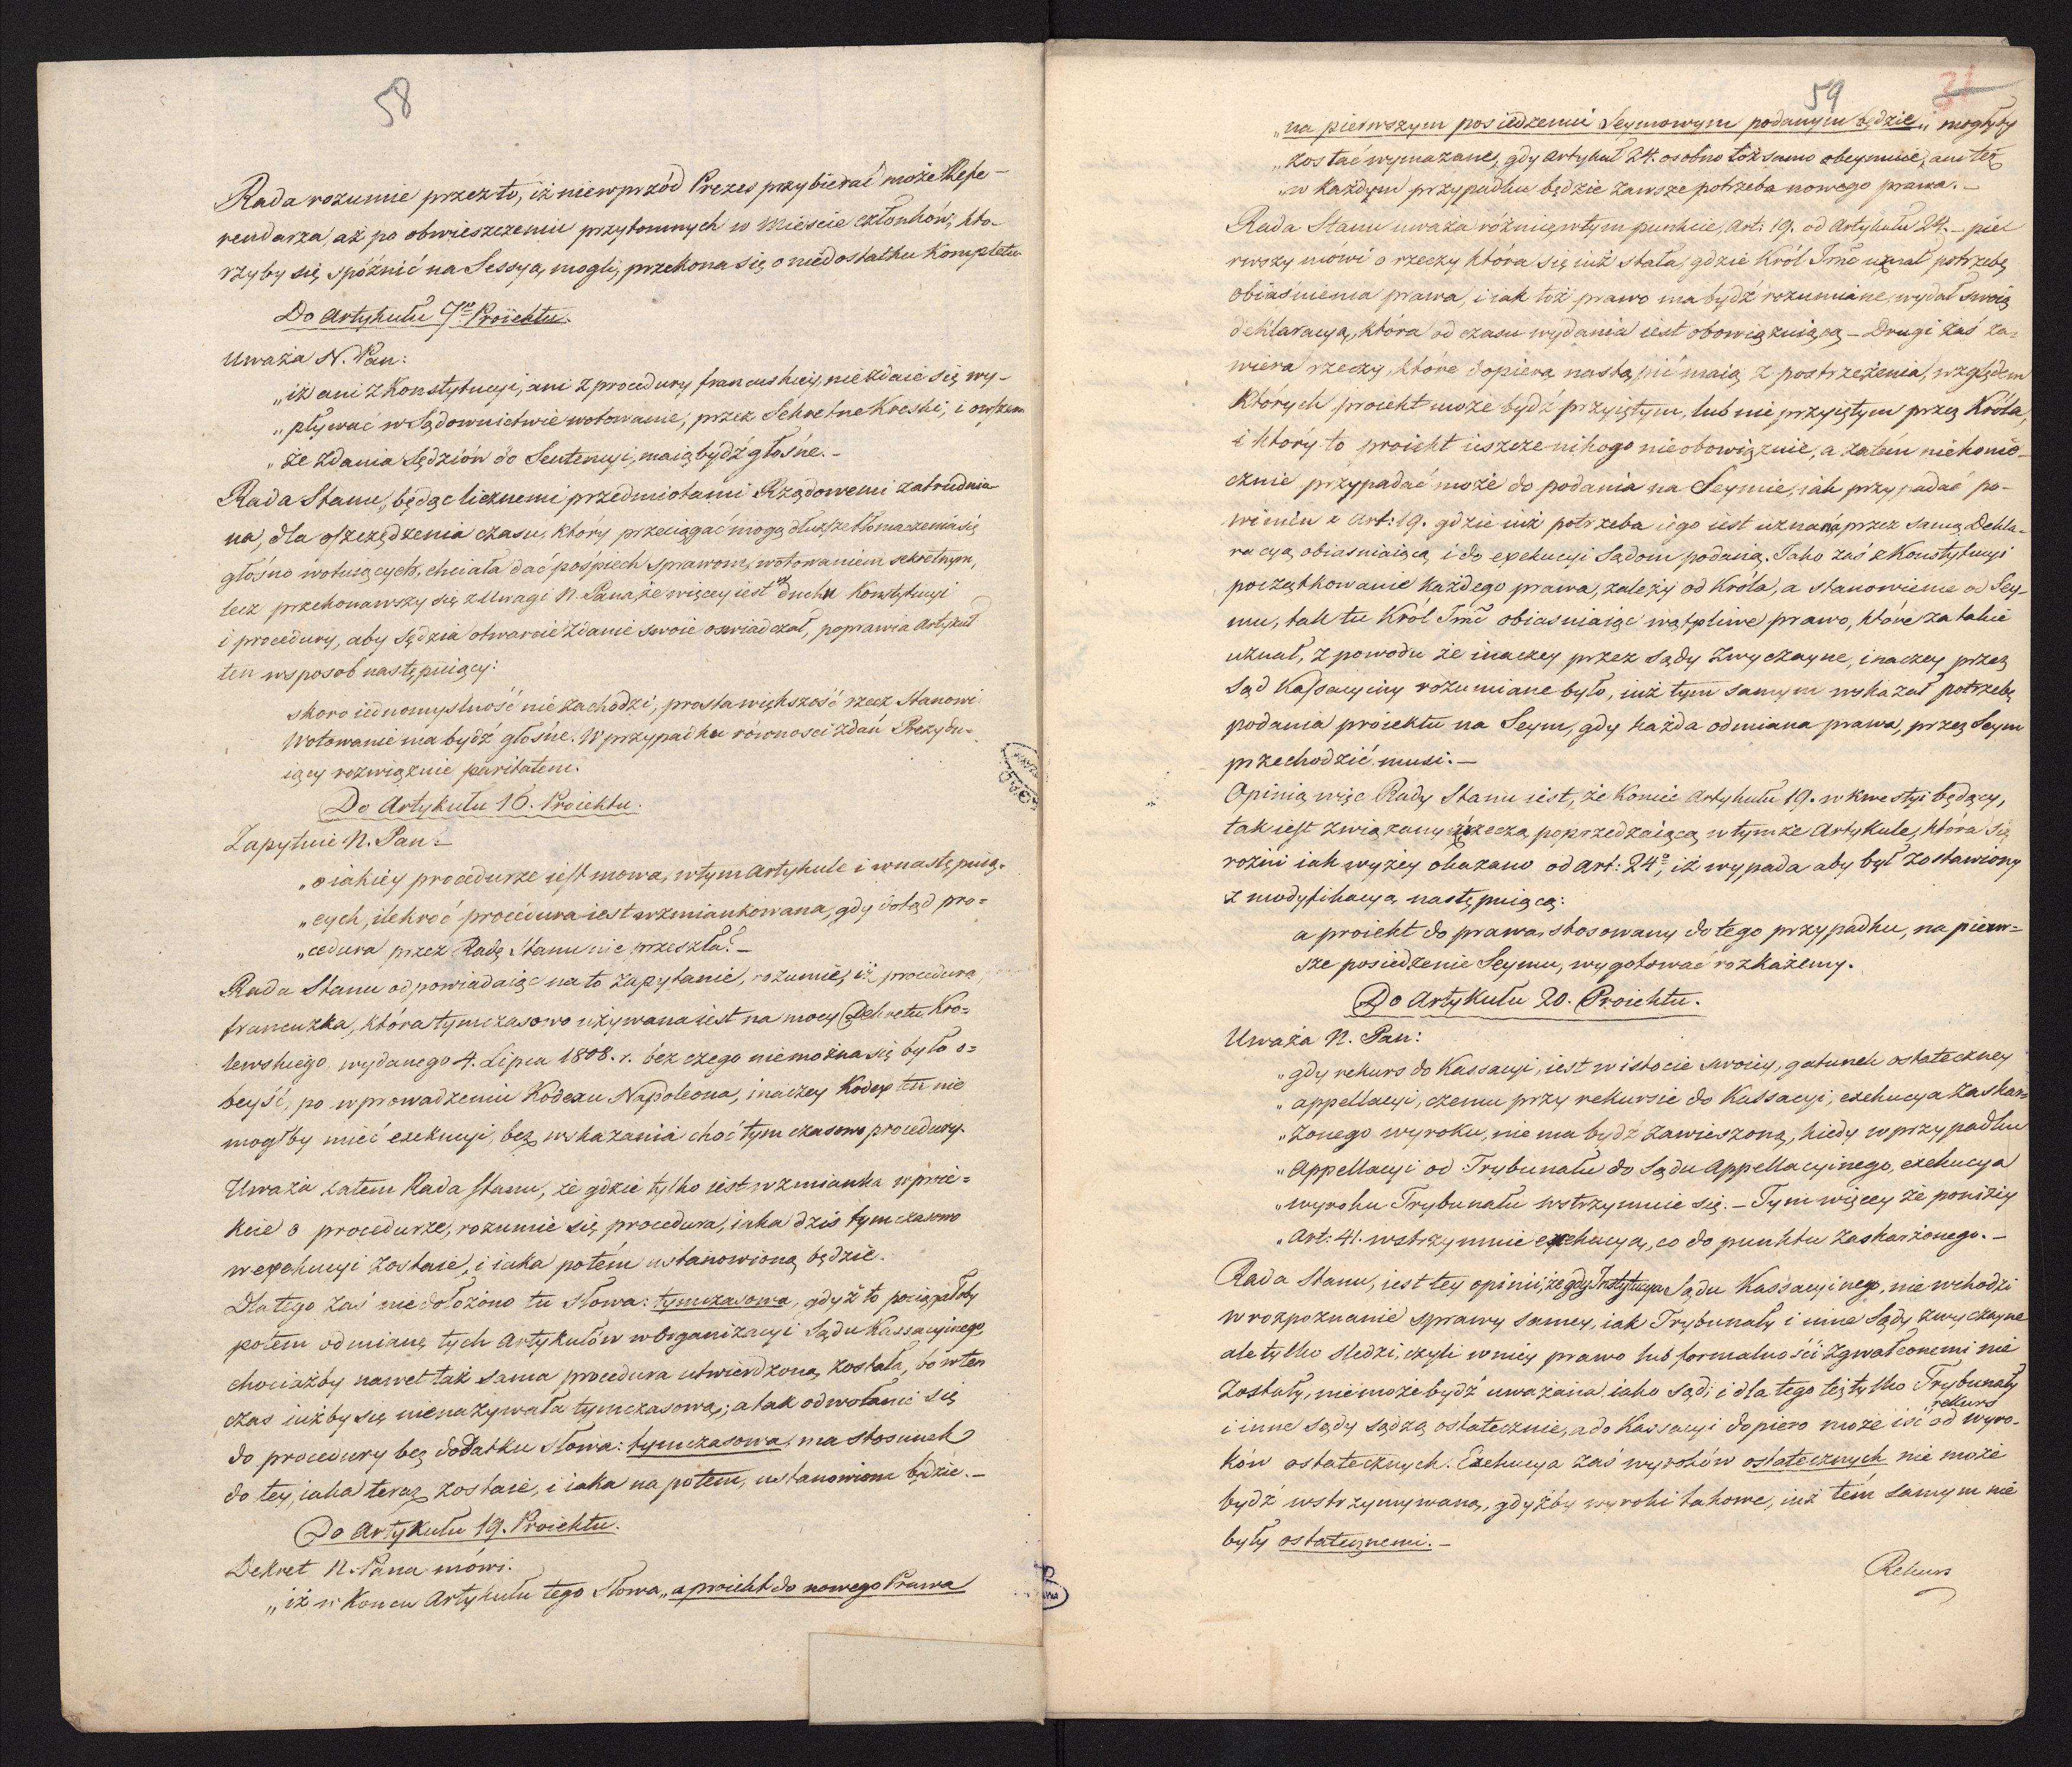 58
Rada rozumie przez to, iż niewprzód Prezes przybierać może Refe-
rendarza, aż po obwieszczeniu przytomnych w Mieście członków, któ-
rzyby się spóźnić na Sessyą mogli, przekona się o niedostatku Kompletu
Do Artykułu 7º Proiektu.
Uważa N. Pan:
„iż ani z Konstytucyi, ani z procedury francuskiey, niezdaie się wy-
„pływać w Sądownictwie wotowanie, przez Sekretne Kreski, i owszem
„że zdania Sędziów do Sentencyi, maią bydź głośne.-
Rada Stanu, będąc licznemi przedmiotami Rządowemi zatrudnia-
na, dla oszczędzenia czasu, który przeciągać mogą dłuższe tłomaczenia się
głośno wotuiących, chciała dać pośpiech sprawom, wotowaniem sekretnym,
lecz przekonawszy się z Uwagi N. Pana, że więcey iest w duchu Konstytucyi
i procedury, aby Sędzia otwarcie zdanie swoie oswiadczał, poprawia Artykuł
ten w sposob następuiący:
skoro iednomyslność nie zachodzi, prosta większość rzecz Stanowi.
Wotowanie ma bydź głośne. W przypadku równosci zdań Prezydu-
iący rozwiązuie paritatem.
Do Artykułu 16. Proiektu.
Zapytuie N. Pan:-
„o iakiey procedurze iest mowa, w tym Artykule i w następuią-
„cych, ilekroć procedura iest wzmiankowana, gdy dotąd pro=
„cedura przez Radę Stanu nie przeszła?-
Rada Stanu odpowiadaiąc na to zapytanie, rozumie, iż procedura
francuzka, która tymczasowo używana iest na mocy Dekretu Kro=
lewskiego, wydanego 4. Lipca 1808. r. bez czego niemożna się było o=
beyść, po wprowadzeniu Kodexu Napoleona, inaczey Kodex ten nie
mogłby mieć exekucyi, bez wskazania choć tymczasowo procedury.
Uważa zatem Rada Stanu, że gdzie tylko iest wzmianka w proie=
kcie o procedurze, rozumie się procedura, iaka dzis tymczasowo
w exekucyi zostaie, i iaka potém ustanowioną będzie.
Dla tego zaś niedołożono tu słowa: tymczasowa, gdyż to pociągałoby
potem odmianę tych Artykułów w Organizacyi Sądu Kassacyinego,
chociażby nawet taż sama procedura utwierdzoną została, bo wten
czas iużby się nienazywała tymczasową; a tak odwołanie się
do procedury bez dodatku słowa: tymczasowa, ma stosunek
do tey, iaka teraz zostaie, i iaka na potém, ustanowiona będzie.-
Do Artykułu 19. Proiektu.
Dekret N. Pana mówi.
„iż w Koncu Artykułu tego słowa „a proiekt do nowego Prawa
59 31
„na pierwszym posiedzeniu Seymowym podanym będzie„ mogłyby
„zostać wymazane, gdy Artykuł 24. osobno tożsamo obeymuie, ani też
„w każdym przypadku będzie zawsze potrzeba nowego prawa.-
Rada Stanu uważa różnicę w tym punkcie, Art: 19. od Artykułu 24.- pier
rwszy mówi o rzeczy która się iuż stała, gdzie Król Jmć uznał potrzebę
obiaśnienia prawa, i iak toż prawo ma bydź rozumiane, wydał swoią
deklaracyą, która od czasu wydania iest obowiązuiącą - Drugi zaś za-
wiera rzeczy, które dopiero nastąpić maią z postrzeżenia, względem
których proiekt może bydź przyiętym, lub nie przyiętym przez Króla,
i który to proiekt ieszcze nikogo nieobowiązuie, a zatém niekonie-
cznie przypadać może do podania na Seymie, iak przypadać po-
winien z Art: 19. gdzie iuż potrzeba iego iest uznaną przez samą Dekla-
racyą obiasniaiącą i do exekucyi Sądom podaną. Jako zaś z Konstytucyi
początkowanie każdego prawa, zależy od Króla, a stanowienie od Sey-
mu, tak tu Król Jmć obiasniaiąc wątpliwe prawo, które za takie
uznał, z powodu że inaczey przez Sądy zwyczayne, inaczey przez
Sąd Kassacyiny rozumiane było, iuż tym samym wskazał potrzebę
podania proiektu na Seym, gdy każda odmiana prawa, przez Seym
przechodzić musi.-
Opinią więc Rady Stanu iest, że koniec Artykułu 19. w kwestyi będący,
tak iest związany z rzeczą poprzedzaiącą w tymże Artykule, która się
rożni iak wyżey okazano od Art: 24º, iż wypada aby był zostawiony
z modyfikacyą następuiącą:
a proiekt do prawa stosowany do tego przypadku, na pierw=
sze posiedzenie Seymu, wygotować rozkażemy.
Do Artykułu 20. Proiektu.
Uważa N. Pan:
„gdy rekurs do Kassacyi, iest w istocie swoiey, gatunek ostateczney
„appellacyi, czemu przy rekursie do Kassacyi, exekucya zaskar-
„żonego wyroku, nie ma bydź zawieszoną, kiedy w przypadku
„Appellacyi od Trybunału do Sądu Appellacyinego, exekucya
„wyroku Trybunału wstrzymuie się.- Tym więcey że poniżey
„Art: 41. wstrzymuie exekucyą, co do punktu zaskarżonego.-
Rada Stanu, iest tey opinii, że gdy Instytucya Sądu Kassacyinego, nie wchodzi
w rozpoznanie sprawy samey, iak Trybunały i inne Sądy zwyczayne
ale tylko sledzi, czyli w niey prawo lub formalności zgwałconemi nie
zostały, niemoże bydź uważana iako sąd; i dla tego też tylko Trybunały
i inne sądy sądzą ostatecznie, a do Kassacyi dopiero może iść rekurs od wyro-
ków ostatecznych. Exekucya zaś wyroków ostatecznych nie może
bydź wstrzymywaną, gdyżby wyroki takowe, iuż tém samym nie
były ostatecznemi.-
Rekurs